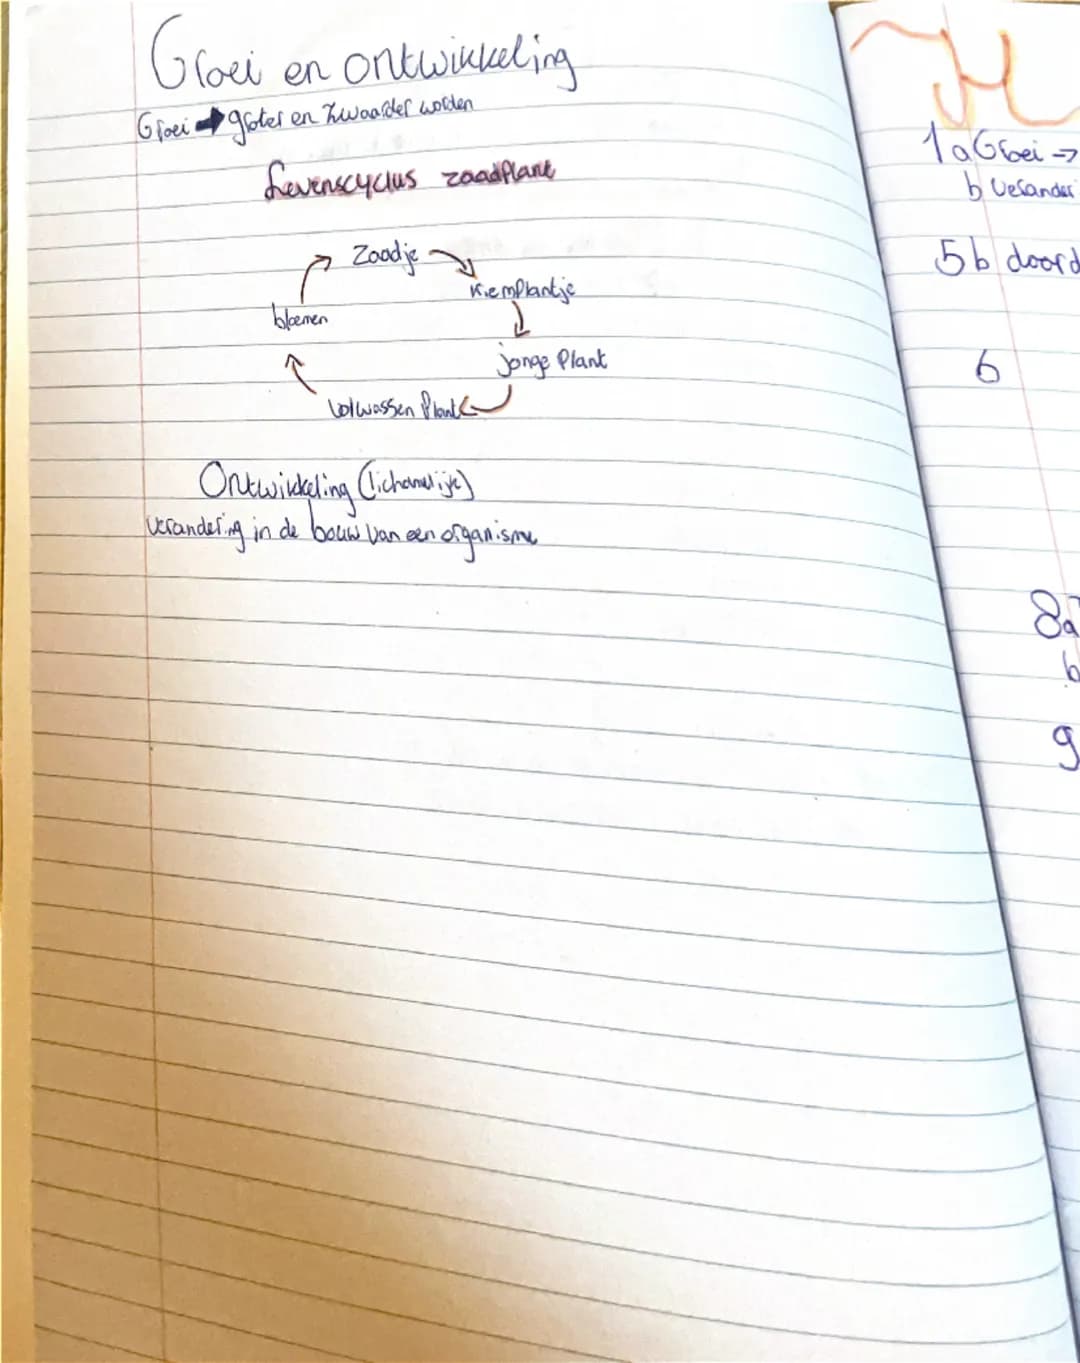 Groei en ontwikkeling
Groei → groter en zwaarder worden
Levenscyclus zaadplant
Zaadje
kiemplantje
bloemen
jonge Plant
Volwassen Plant
Ontwikkeling (lichamelijk)
verandering in de bouw van een organisme
1 a Groei →
b Verander
5b doord
6
8a
b
9